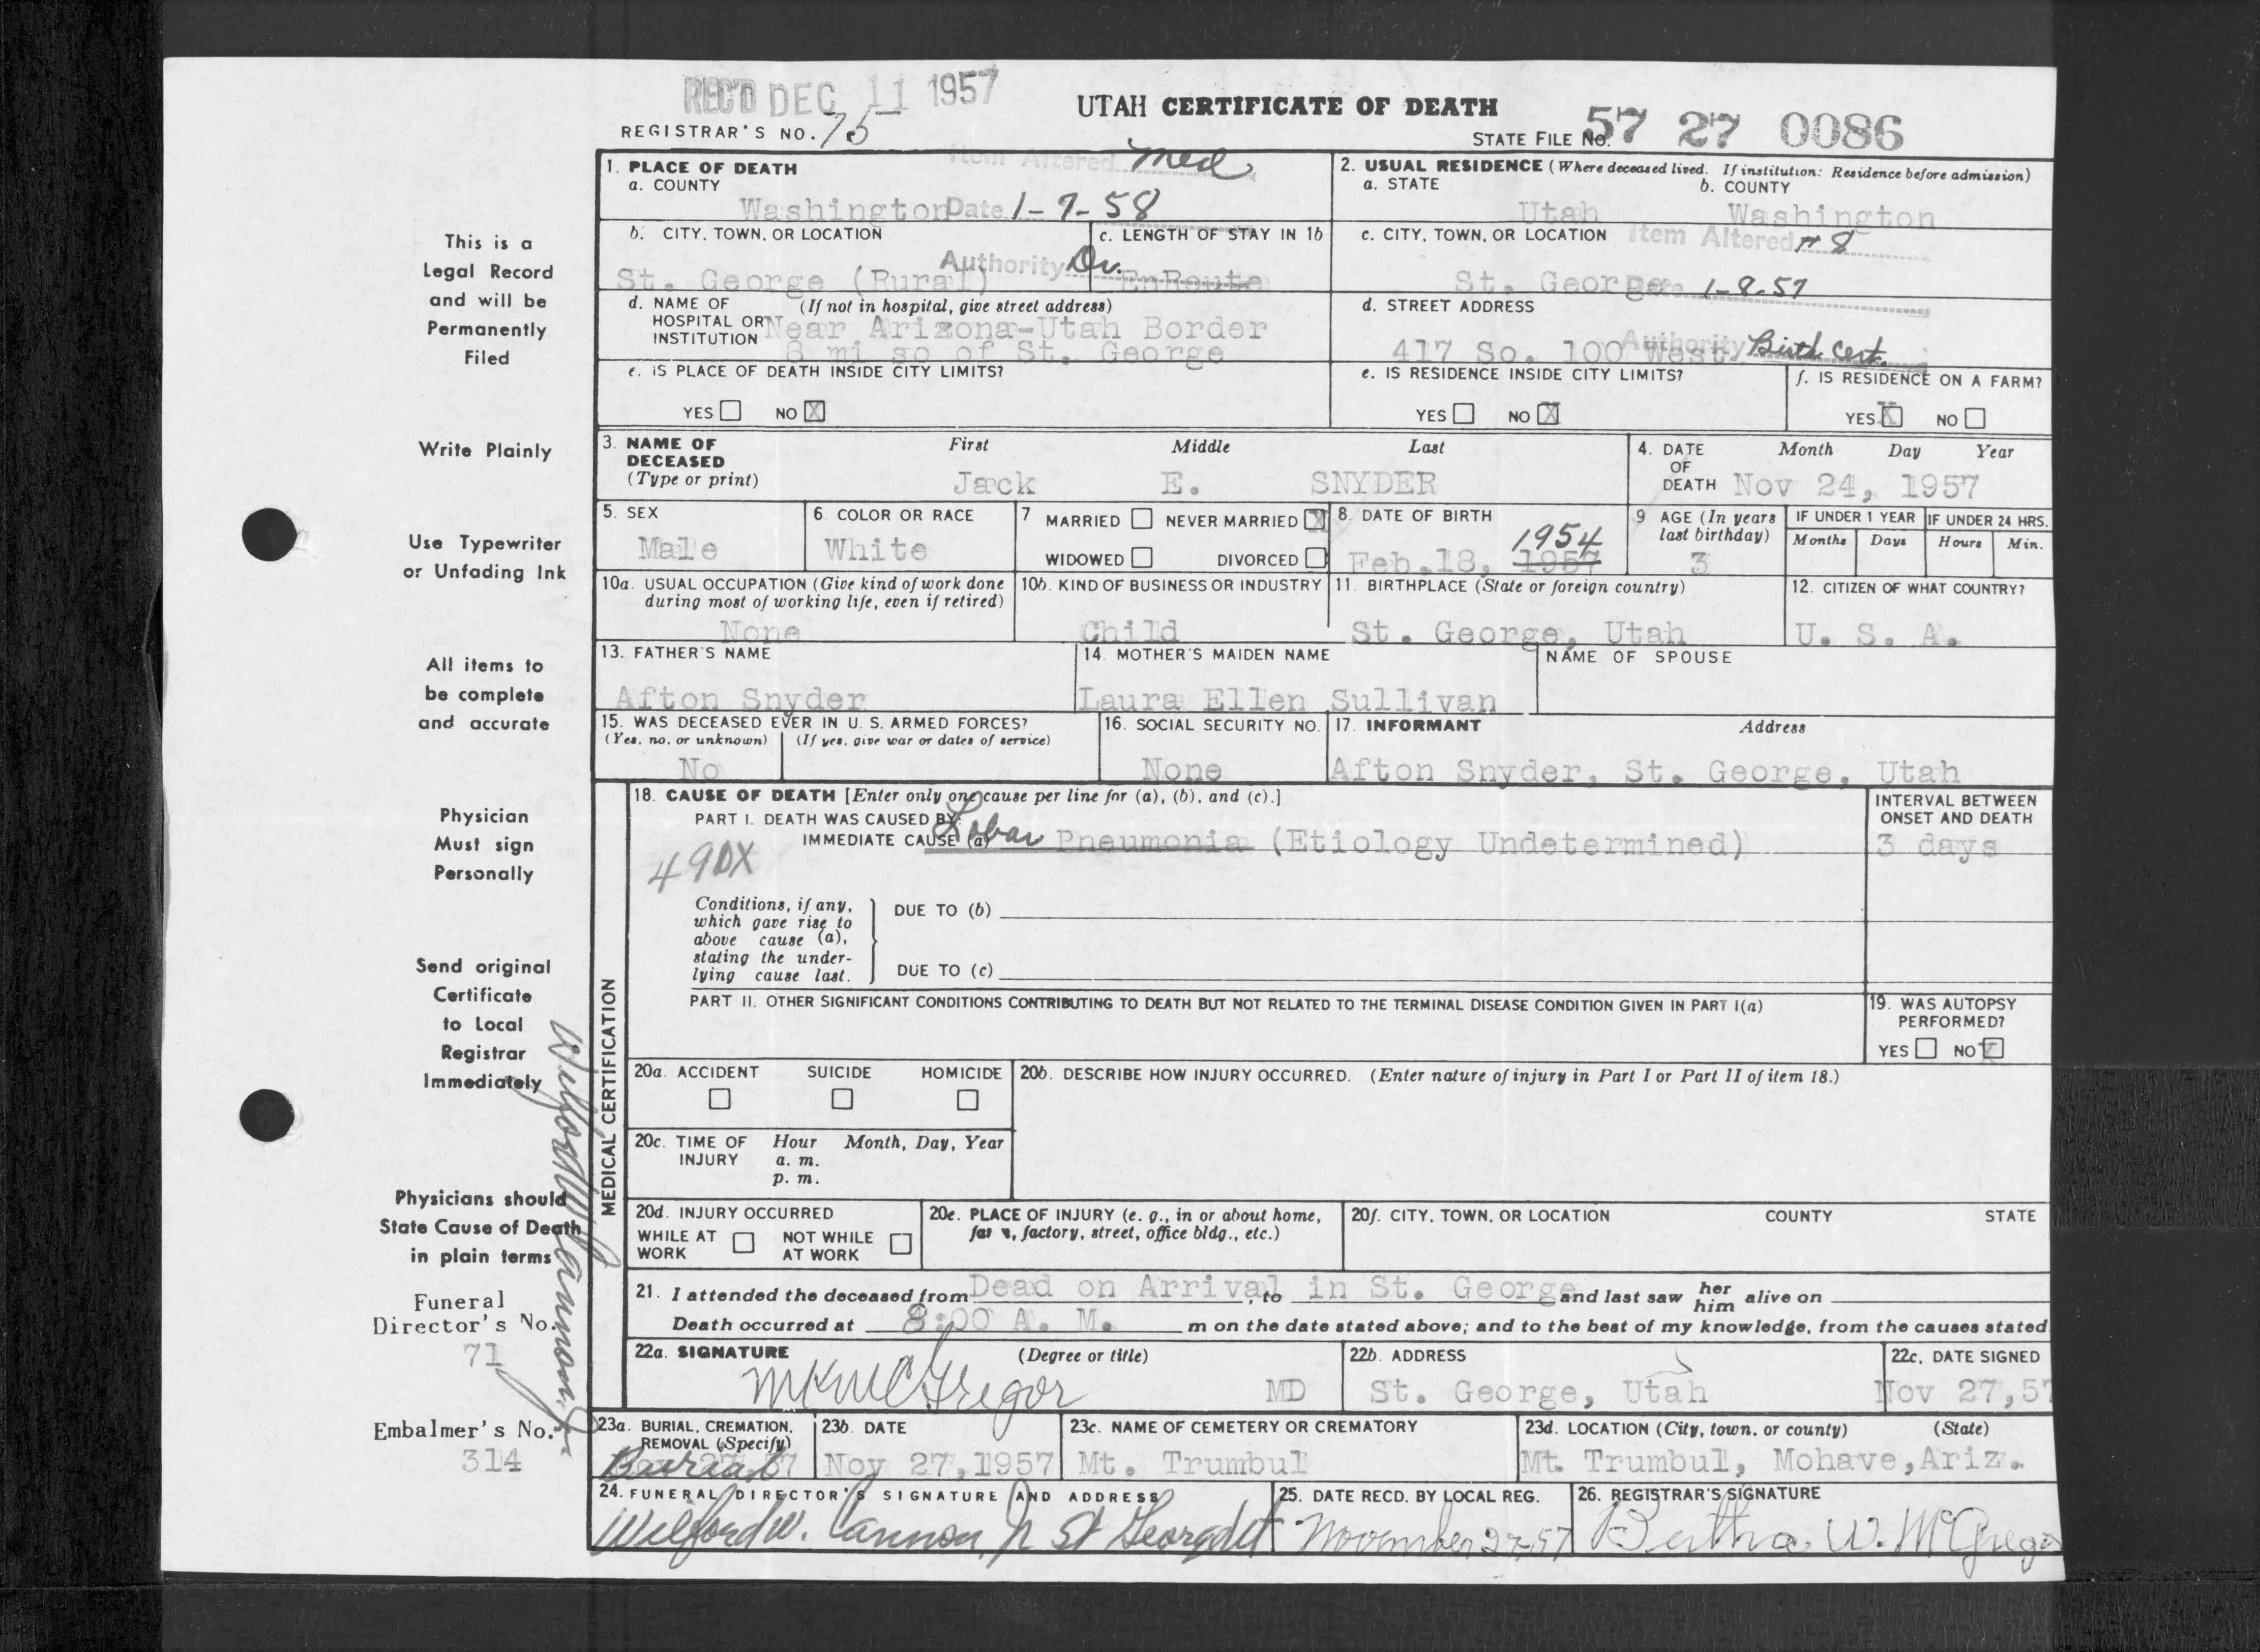 REC'D DEC 11 1957
UTAH CERTIFICATE OF DEATH
REGISTRAR'S NO. 75
STATE FILE No. 57 27 0086
Item Altered Med
1. PLACE OF DEATH
a. COUNTY
Washington Date 1-7-58
2. USUAL RESIDENCE (Where deceased lived. If institution: Residence before admission)
a. STATE b. COUNTY
Utah Washington
b. CITY, TOWN, OR LOCATION c. LENGTH OF STAY IN 1b
Authority Dr.
St. George (Rural) EnRoute
c. CITY, TOWN, OR LOCATION Item Altered # 8
St. George Date 1-8-57
d. NAME OF (If not in hospital, give street address)
HOSPITAL OR
INSTITUTION
Near Arizona-Utah Border
8 mi so of St. George
d. STREET ADDRESS
417 So. 100 West Authority Birth Cert.
e. IS PLACE OF DEATH INSIDE CITY LIMITS?
YES NO X
e. IS RESIDENCE INSIDE CITY LIMITS?
YES NO X
f. IS RESIDENCE ON A FARM?
YES X NO
3. NAME OF DECEASED (Type or print)
First Middle Last
Jack E. SNYDER
4. DATE OF DEATH Month Day Year
Nov 24, 1957
5. SEX
Male
6. COLOR OR RACE
White
7 MARRIED NEVER MARRIED X
WIDOWED DIVORCED
8. DATE OF BIRTH
1954
Feb.18, 1957
9 AGE (In years
last birthday)
3
IF UNDER 1 YEAR IF UNDER 24 HRS.
Months Days Hours Min.
10a. USUAL OCCUPATION (Give kind of work done
during most of working life, even if retired)
None
10b. KIND OF BUSINESS OR INDUSTRY
Child
11. BIRTHPLACE (State or foreign country)
St. George, Utah
12. CITIZEN OF WHAT COUNTRY?
U. S. A.
13. FATHER'S NAME
Afton Snyder
14. MOTHER'S MAIDEN NAME
Laura Ellen Sullivan
NAME OF SPOUSE
15. WAS DECEASED EVER IN U. S. ARMED FORCES?
(Yes, no, or unknown) (If yes, give war or dates of service)
No
16. SOCIAL SECURITY NO.
None
17. INFORMANT Address
Afton Snyder, St. George, Utah
MEDICAL CERTIFICATION
18. CAUSE OF DEATH [Enter only one cause per line for (a), (b), and (c).]
PART I. DEATH WAS CAUSED BY:
IMMEDIATE CAUSE (a) Lobar Pneumonia (Etiology Undetermined)
INTERVAL BETWEEN
ONSET AND DEATH
3 days
490X
Conditions, if any,
which gave rise to
above cause (a),
stating the under-
lying cause last.
DUE TO (b)
DUE TO (c)
PART II. OTHER SIGNIFICANT CONDITIONS CONTRIBUTING TO DEATH BUT NOT RELATED TO THE TERMINAL DISEASE CONDITION GIVEN IN PART I(a)
19. WAS AUTOPSY
PERFORMED?
YES NO X
20a. ACCIDENT SUICIDE HOMICIDE
20b. DESCRIBE HOW INJURY OCCURRED. (Enter nature of injury in Part I or Part II of item 18.)
20c. TIME OF INJURY Hour Month, Day, Year
a. m.
p. m.
20d. INJURY OCCURRED
WHILE AT WORK NOT WHILE AT WORK
20e. PLACE OF INJURY (e. g., in or about home,
farm, factory, street, office bldg., etc.)
20f. CITY, TOWN, OR LOCATION COUNTY STATE
21. I attended the deceased from Dead on Arrival, to in St. George and last saw her him alive on
Death occurred at 8:00 A. M. m on the date stated above; and to the best of my knowledge, from the causes stated
22a. SIGNATURE (Degree or title)
M K McGregor MD
22b. ADDRESS
St. George, Utah
22c. DATE SIGNED
Nov 27,57
23a. BURIAL, CREMATION,
REMOVAL (Specify)
Burial
23b. DATE
Nov 27,1957
23c. NAME OF CEMETERY OR CREMATORY
Mt. Trumbul
23d. LOCATION (City, town, or county) (State)
Mt. Trumbul, Mohave, Ariz.
24. FUNERAL DIRECTOR'S SIGNATURE AND ADDRESS
Wilford W. Cannon Jr St George Ut
25. DATE RECD. BY LOCAL REG.
November 27-57
26. REGISTRAR'S SIGNATURE
Bertha W. McGregor
This is a
Legal Record
and will be
Permanently
Filed
Write Plainly
Use Typewriter
or Unfading Ink
All items to
be complete
and accurate
Physician
Must sign
Personally
Send original
Certificate
to Local
Registrar
Immediately
Physicians should
State Cause of Death
in plain terms
Funeral
Director's No.
71
Embalmer's No.
314
Wilford W. Cannon Jr